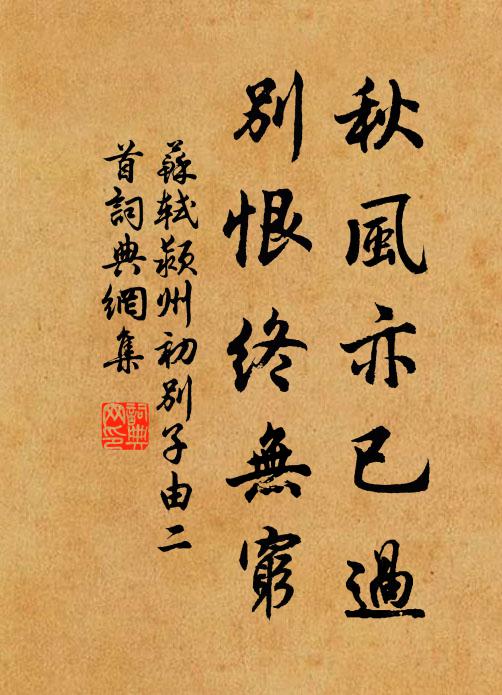 秋風亦已過
別恨終無窮
蘇軾潁州初別子由二
首詞典網集
詞典
網印